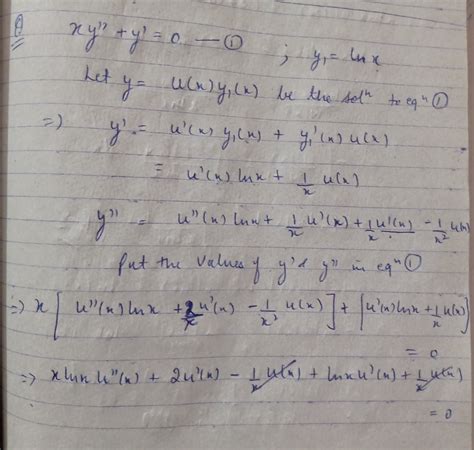 Q xy'' + y' = 0 — ① ; y₁ = ln x
Let y = u(x) y₁(x) be the solⁿ to eqⁿ ①
⇒) y' = u'(x) y₁(x) + y₁'(x) u(x)
= u'(x) ln x + 1/x u(x)
y'' = u''(x) ln x + 1/x u'(x) + 1/x u'(x) - 1/x² u(x)
Put the values of y' & y'' in eqⁿ ①
⇒) x [ u''(x) ln x + 2/x u'(x) - 1/x² u(x) ] + [ u'(x) ln x + 1/x u(x)
= 0
⇒ x ln x u''(x) + 2u'(x) - 1/x u(x) + ln x u'(x) + 1/x u(x)
= 0